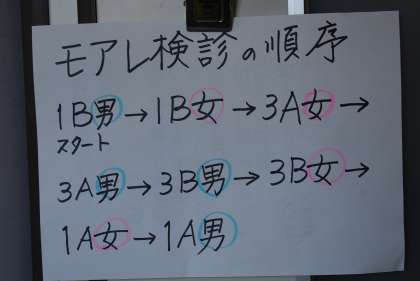 モアレ検診の順序
1B男→1B女→3A女→
スタート
3A男→3B男→3B女→
1A女→1A男